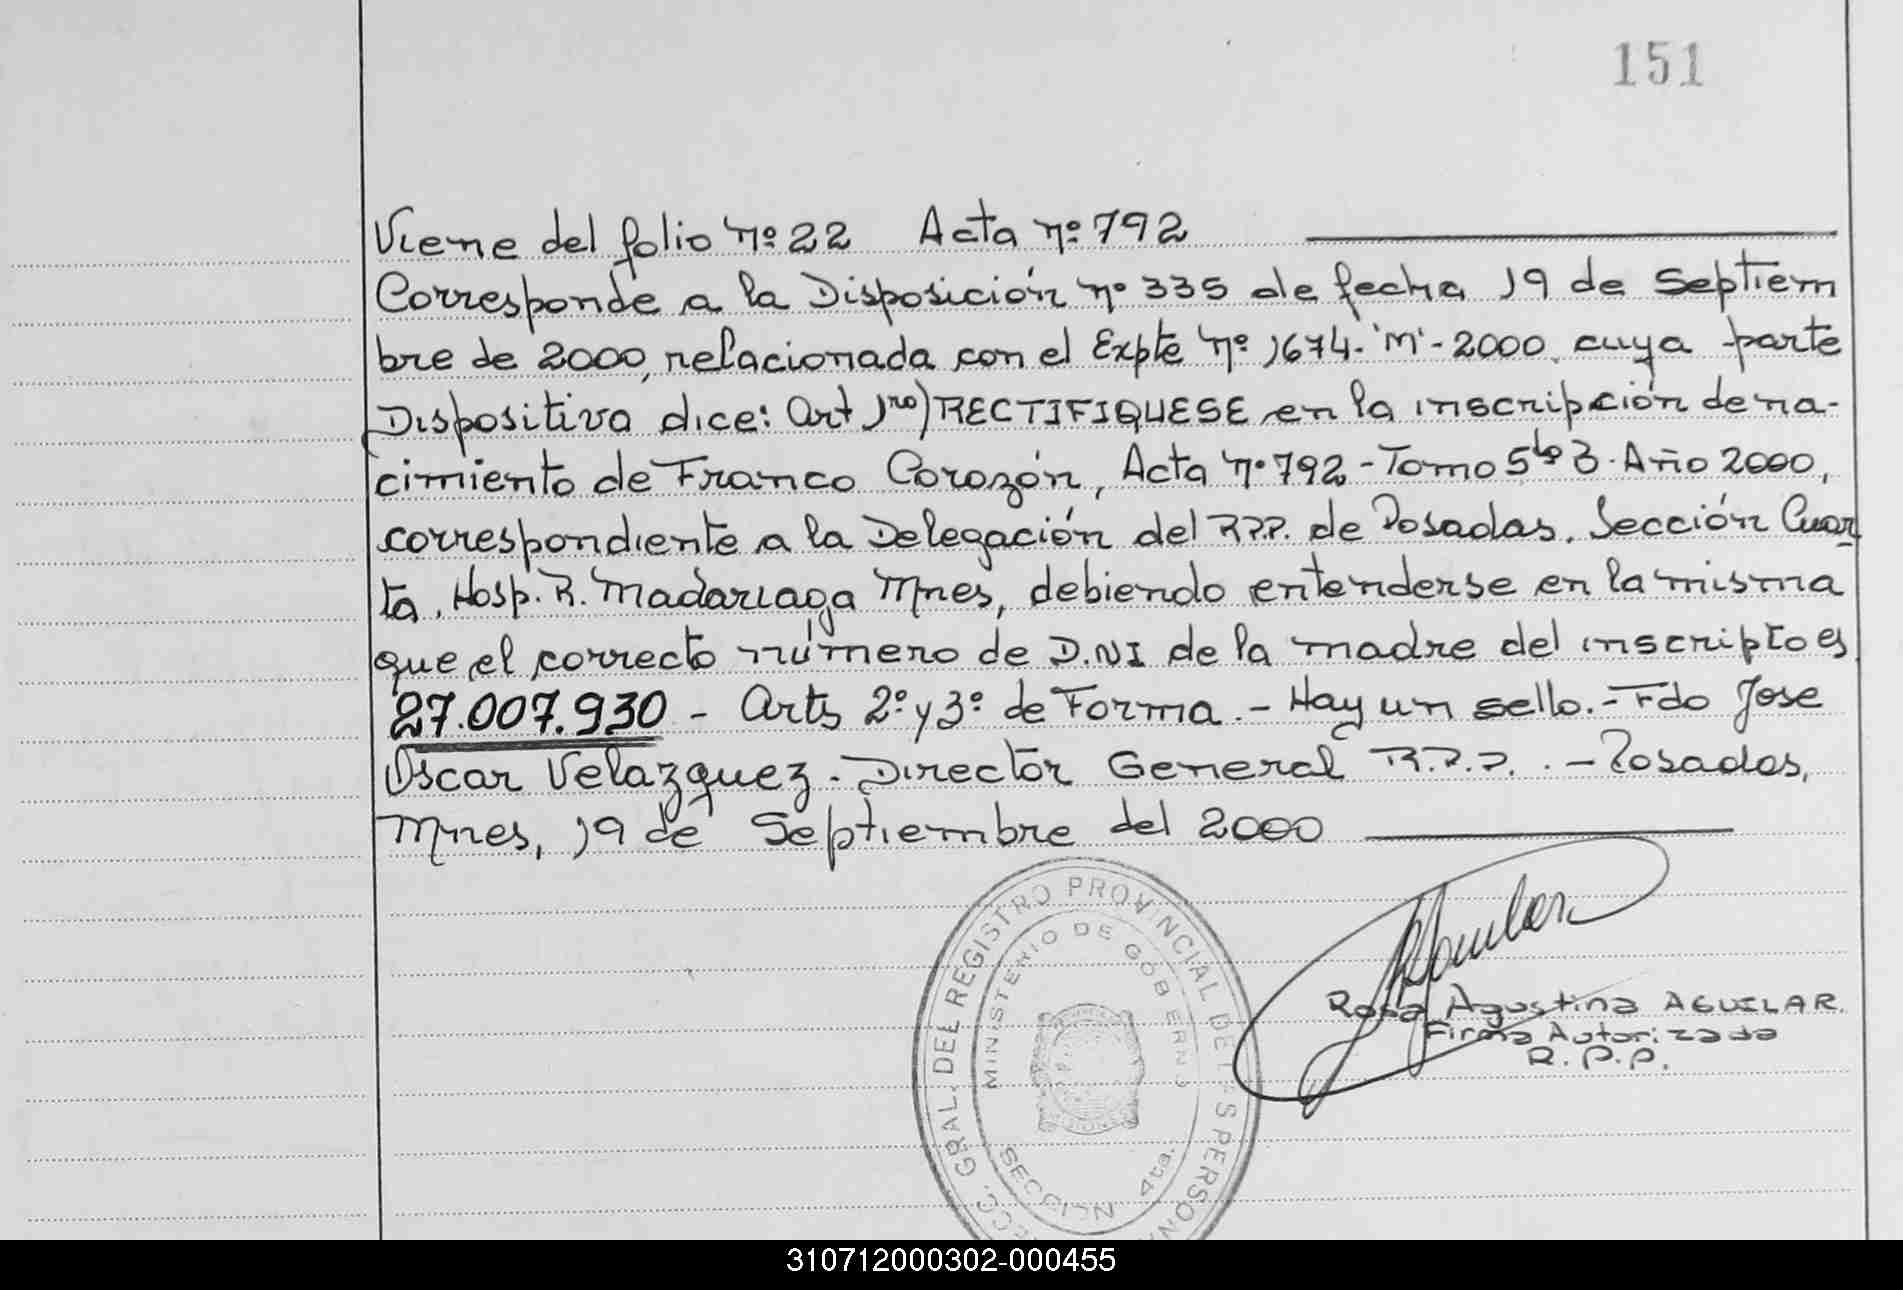 151
Viene del folio nº 22 Acta nº 792
Corresponde a la Disposición nº 335 de fecha 19 de Septiem
bre de 2000, relacionada con el Expte nº 1674-'M'-2000, cuya parte
Dispositiva dice: Art 1ro) RECTIFIQUESE en la inscripción de na-
cimiento de Franco Corozón, Acta nº 792 - Tomo 5to B - Año 2000,
correspondiente a la Delegación del R.P.P. de Posadas, Sección Cuar
ta, Hosp. R. Madariaga Mnes, debiendo entenderse en la misma
que el correcto número de D.NI de la madre del inscripto es
27.007.930 - Arts 2º y 3º de Forma. - Hay un sello. - Fdo Jose
Oscar Velazquez - Director General R.P.P. - Posadas,
Mnes, 19 de Septiembre del 2000
GRAL. DEL REGISTRO PROVINCIAL DE
MINISTERIO DE GOBIERNO
SECCION 4ta.
Aguilar
Rosa Agustina AGUILAR
Firma Autorizada
R.P.P.
310712000302-000455